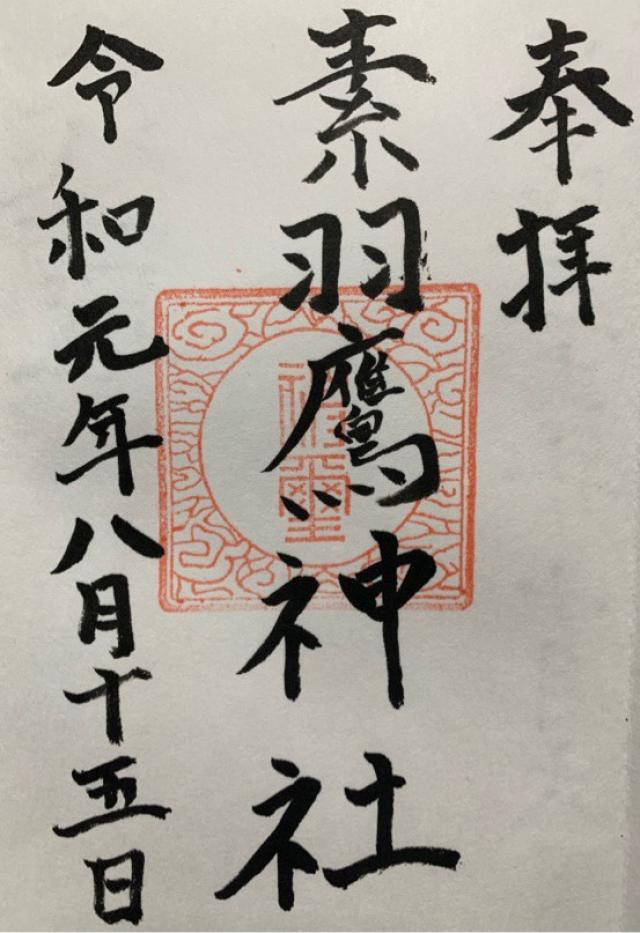 奉拝
素羽鷹神社
令和元年八月十五日
神璽